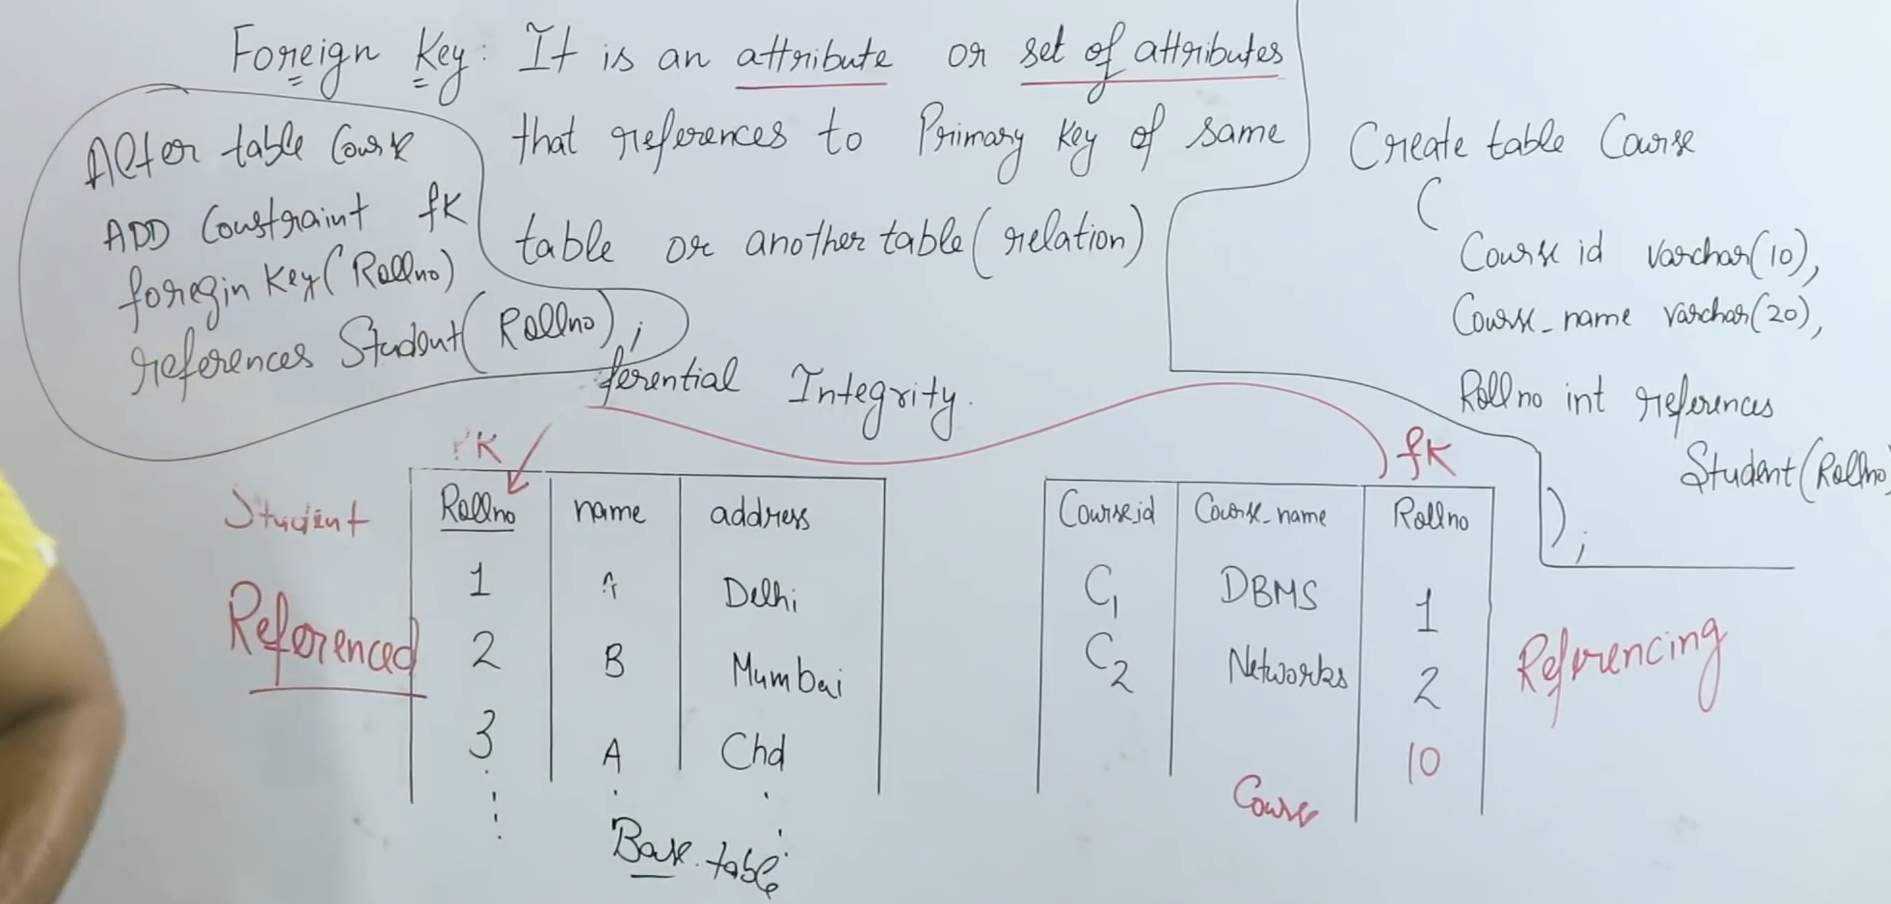 Foreign Key: It is an attribute or set of attributes
that references to Primary Key of same
table or another table (relation)
ferential Integrity.
Alter table Course
ADD Constraint fk
foregin key (Rollno)
references Student (Rollno);
Create table Course
(
Course id varchar(10),
Course_name varchar(20),
Rollno int references
Student (Rollno)
);
PK
Student
Referenced
Rollno name address
1 A Delhi
2 B Mumbai
3 A Chd
Base table
fk
Course id Course_name Rollno
C1 DBMS 1
C2 Networks 2
10
Course
Referencing